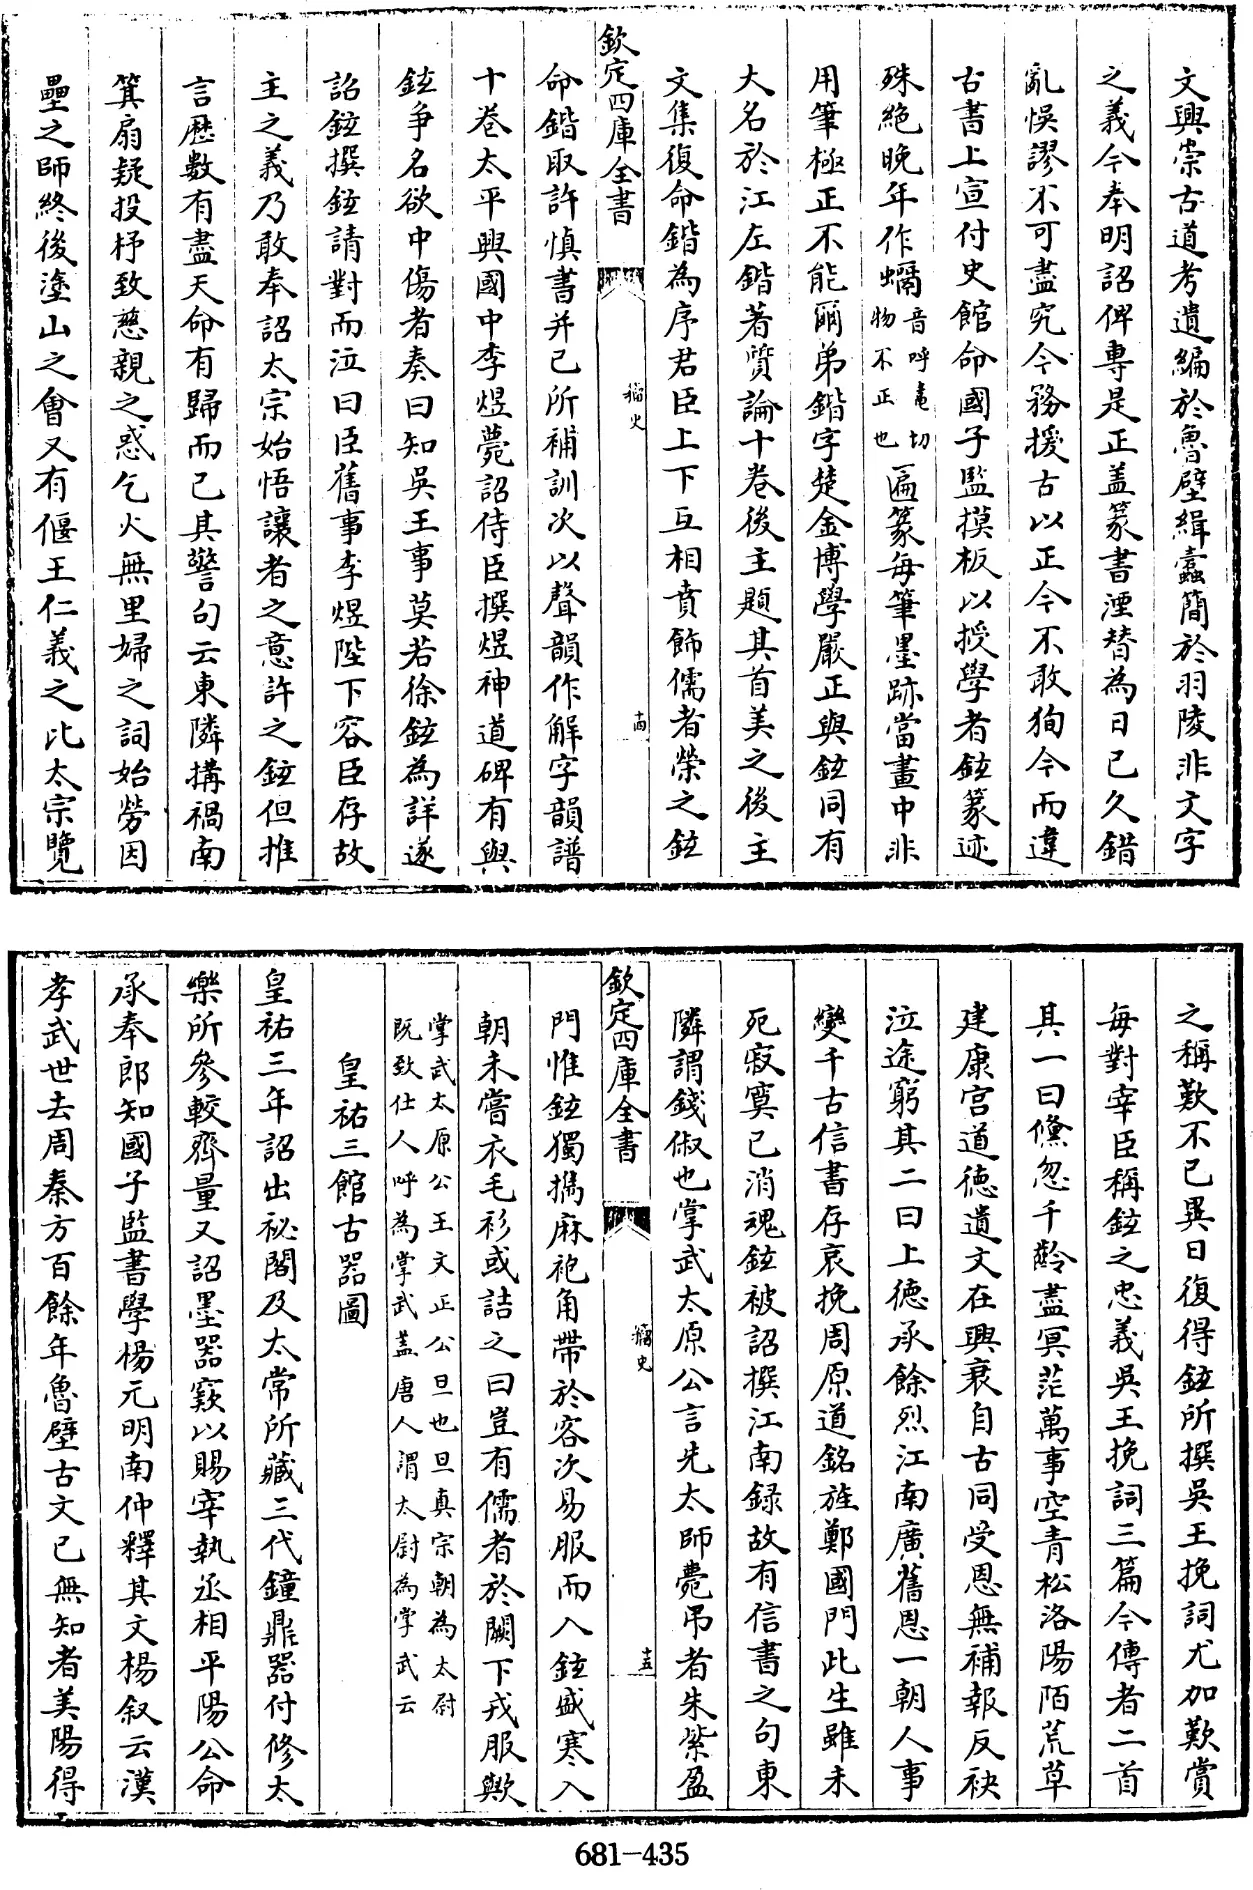 文興崇古道考遺編於魯壁緝蠧簡於羽陵非文字
之義今奉明詔俾專是正盖篆書湮替為日已久錯
亂悞謬不可盡究今務援古以正今不敢狥今而違
古書上宣付史館命國子監摸板以授學者鉉篆迹
殊絶晚年作蠣音呼黾切物不正也匾篆每筆墨跡當畫中非
用筆極正不能爾弟鍇字楚金博學嚴正與鉉同有
大名於江左鍇著質論十巻後主題其首美之後主
文集復命鍇為序君臣上下互相賁飾儒者榮之鉉
欽定四庫全書
籀史
十四
命鍇取許慎書并已所補訓次以聲韻作解字韻譜
十巻太平興國中李煜薨詔侍臣撰煜神道碑有與
鉉爭名欲中傷者奏曰知吳王事莫若徐鉉為詳遂
詔鉉撰鉉請對而泣曰臣舊事李煜陛下容臣存故
主之義乃敢奉詔太宗始悟讓者之意許之鉉但推
言歴數有盡天命有歸而已其警句云東隣搆禍南
箕扇疑投杼致慈親之惑乞火無里婦之詞始勞因
壘之師終後塗山之會又有偃王仁義之比太宗覽
之稱歎不已異日復得鉉所撰吳王挽詞尤加歎賞
每對宰臣稱鉉之忠義吳王挽詞三篇今傳者二首
其一曰儵忽千齡盡冥茫萬事空青松洛陽陌荒草
建康宫道徳遺文在興衰自古同受恩無補報反袂
泣途窮其二曰上徳承餘烈江南廣舊恩一朝人事
變千古信書存哀挽周原道銘旌鄭國門此生雖未
死寂寞已消魂鉉被詔撰江南録故有信書之句東
隣謂錢俶也掌武太原公言先太師薨弔者朱紫盈
欽定四庫全書
籀史
十五
門惟鉉獨攜麻袍角帶於客次易服而入鉉盛寒入
朝未嘗衣毛衫或詰之曰豈有儒者於闕下戎服歟
掌武太原公王文正公旦也旦真宗朝為太尉
既致仕人呼為掌武盖唐人謂太尉為掌武云
皇祐三館古器圖
皇祐三年詔出祕閣及太常所藏三代鐘鼎器付修太
樂所參較齊量又詔墨器窾以賜宰執丞相平陽公命
承奉郎知國子監書學楊元明南仲釋其文楊叙云漢
孝武世去周秦方百餘年魯壁古文已無知者美陽得
681-435